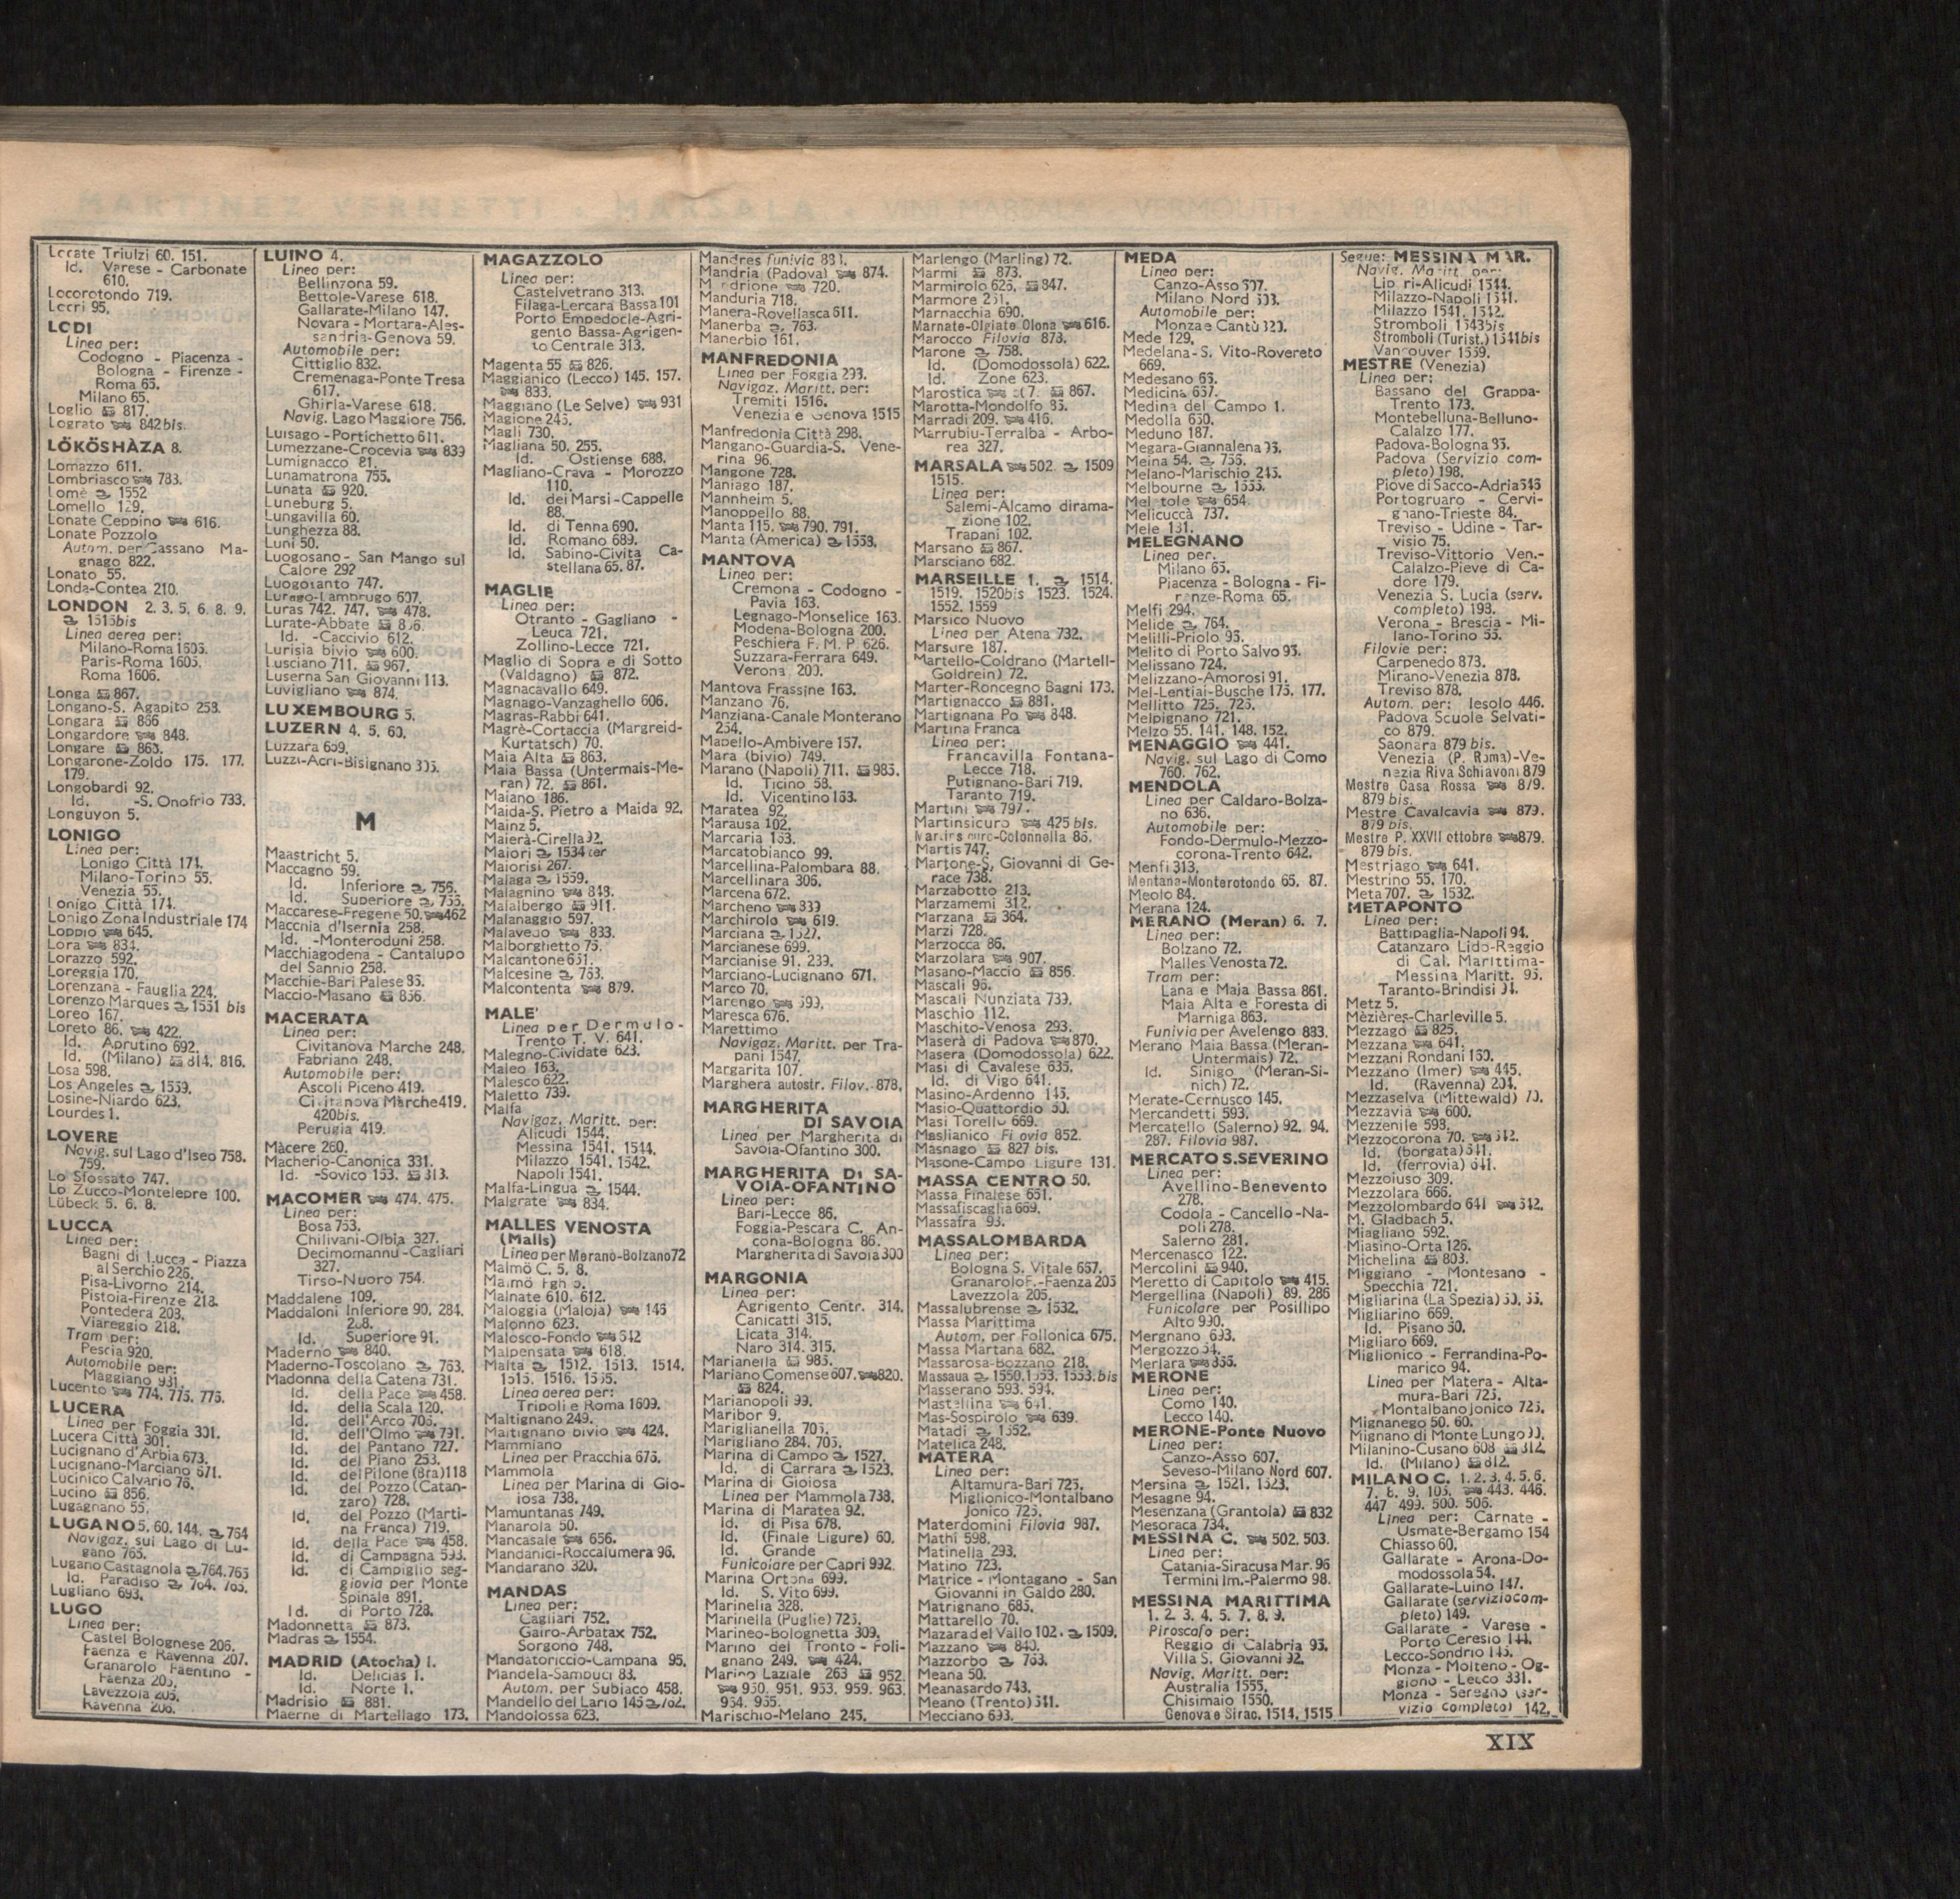 MARTINEZ VERNETTI • MARSALA • VINI MARSALA - VERMOUTH - VINI BIANCHI
Locate Triulzi 60. 151.
Id. Varese - Carbonate
610.
Locorotondo 719.
Locri 95.
LODI
Linea per:
Codogno - Piacenza -
Bologna - Firenze -
Roma 65.
Milano 65.
Loglio 817.
Lograto 842bis.
LŐKÖSHÀZA 8.
Lomazzo 611.
Lombriasco 783.
Lomè 1552
Lomello 129.
Lonate Ceppino 616.
Lonate Pozzolo
Autom. per Cassano Ma-
gnago 822.
Lonato 55.
Londa-Contea 210.
LONDON 2. 3. 5. 6. 8. 9.
1515bis
Linea aerea per:
Milano-Roma 1605.
Paris-Roma 1605.
Roma 1606.
Longa 867.
Longano-S. Agapito 258.
Longara 866
Longardore 848.
Longare 863.
Longarone-Zoldo 175. 177.
179.
Longobardi 92.
Id. -S. Onofrio 733.
Longuyon 5.
LONIGO
Linea per:
Lonigo Città 174.
Milano-Torino 55.
Venezia 55.
Lonigo Città 174.
Lonigo Zona Industriale 174
Loppio 645.
Lora 834.
Lorazzo 592.
Loreggia 170.
Lorenzana - Fauglia 224.
Lorenzo Marques 1551 bis
Loreo 167.
Loreto 86. 422.
Id. Aprutino 692.
Id. (Milano) 814. 816.
Losa 598.
Los Angeles 1559.
Losine-Niardo 623.
Lourdes 1.
LOVERE
Navig. sul Lago d'Iseo 758.
759.
Lo Sfossato 747.
Lo Zucco-Montelepre 100.
Lübeck 5. 6. 8.
LUCCA
Linea per:
Bagni di Lucca - Piazza
al Serchio 226.
Pisa-Livorno 214.
Pistoia-Firenze 218.
Pontedera 203.
Viareggio 218.
Tram per:
Pescia 920.
Automobile per:
Maggiano 931.
Lucento 774. 775. 776.
LUCERA
Linea per Foggia 301.
Lucera Città 301.
Lucignano d'Arbia 673.
Lucignano-Marciano 671.
Lucinico Calvario 76.
Lucino 856.
Lugagnano 55.
LUGANO 5. 60. 144. 764
Navigaz. sul Lago di Lu-
gano 765.
Lugano Castagnola 764.765
Id. Paradiso 764. 765.
Lugliano 693.
LUGO
Linea per:
Castel Bolognese 206.
Faenza e Ravenna 207.
Granarolo Faentino -
Faenza 205.
Lavezzola 205.
Ravenna 206.
LUINO 4.
Linea per:
Bellinzona 59.
Bettole-Varese 618.
Gallarate-Milano 147.
Novara - Mortara-Ales-
sandria-Genova 59.
Automobile per:
Cittiglio 832.
Cremenaga-Ponte Tresa
617.
Ghirla-Varese 618.
Navig. Lago Maggiore 756.
Luisago - Portichetto 611.
Lumezzane-Crocevia 839
Lumignacco 81.
Lunamatrona 755.
Lunata 920.
Luneburg 5.
Lungavilla 60.
Lunghezza 88.
Luni 50.
Luogosano - San Mango sul
Calore 292
Luogosanto 747.
Lurago-Lambrugo 607.
Luras 742. 747. 478.
Lurate-Abbate 856.
Id. -Caccivio 612.
Lurisia bivio 600.
Lusciano 711. 967.
Luserna San Giovanni 113.
Luvigliano 874.
LUXEMBOURG 5.
LUZERN 4. 5. 60.
Luzzara 659.
Luzzi-Acri-Bisignano 305.
M
Maastricht 5.
Maccagno 59.
Id. Inferiore 756.
Id. Superiore 756.
Maccarese-Fregene 50. 462
Macchia d'Isernia 258.
Id. -Monteroduni 258.
Macchiagodena - Cantalupo
del Sannio 258.
Macchie-Bari Palese 86.
Maccio-Masano 856.
MACERATA
Linea per:
Civitanova Marche 248.
Fabriano 248.
Automobile per:
Ascoli Piceno 419.
Civitanova Marche 419.
420bis.
Perugia 419.
Màcere 260.
Macherio-Canonica 331.
Id. -Sovico 153. 313.
MACOMER 474. 475.
Linea per:
Bosa 753.
Chilivani-Olbia 327.
Decimomannu-Cagliari
327.
Tirso-Nuoro 754.
Maddalene 109.
Maddaloni Inferiore 90. 284.
288.
Id. Superiore 91.
Maderno 840.
Maderno-Toscolano 763.
Madonna della Catena 731.
Id. della Pace 458.
Id. della Scala 120.
Id. dell'Arco 705.
Id. dell'Olmo 791.
Id. del Pantano 727.
Id. del Piano 253.
Id. del Pilone (Bra) 118
Id. del Pozzo (Catan-
zaro) 728.
Id. del Pozzo (Marti-
na Franca) 719.
Id. della Pace 458.
Id. di Campagna 593.
Id. di Campiglio seg-
giovia per Monte
Spinale 891.
Id. di Porto 728.
Madonnetta 873.
Madras 1554.
MADRID (Atocha) 1.
Id. Delicias 1.
Id. Norte 1.
Madrisio 881.
Maerne di Martellago 173.
MAGAZZOLO
Linea per:
Castelvetrano 313.
Filaga-Lercara Bassa 101
Porto Empedocle-Agri-
gento Bassa-Agrigen-
to Centrale 313.
Magenta 55 826.
Maggianico (Lecco) 145. 157.
833.
Maggiano (Le Selve) 931
Magione 245.
Magli 730.
Magliana 50. 255.
Id. Ostiense 688.
Magliano-Crava - Morozzo
110.
Id. dei Marsi-Cappelle
88.
Id. di Tenna 690.
Id. Romano 689.
Id. Sabino-Civita Ca-
stellana 65. 87.
MAGLIE
Linea per:
Otranto - Gagliano -
Leuca 721.
Zollino-Lecce 721.
Maglio di Sopra e di Sotto
(Valdagno) 872.
Magnacavallo 649.
Magnago-Vanzaghello 606.
Magras-Rabbi 641.
Magrè-Cortaccia (Margreid-
Kurtatsch) 70.
Maia Alta 863.
Maia Bassa (Untermais-Me-
ran) 72. 861.
Maiano 186.
Maida-S. Pietro a Maida 92.
Mainz 5.
Maierà-Cirella 92.
Maiori 1534 ter
Maiorisi 267.
Malaga 1559.
Malagnino 848.
Malalbergo 911.
Malanaggio 597.
Malavedo 833.
Malborghetto 75.
Malcantone 651.
Malcesine 763.
Malcontenta 879.
MALE'
Linea per Dermulo-
Trento T. V. 641.
Malegno-Cividate 623.
Maleo 163.
Malesco 622.
Maletto 739.
Malfa
Navigaz. Maritt. per:
Alicudi 1544.
Messina 1541. 1544.
Milazzo 1541. 1542.
Napoli 1541.
Malfa-Lingua 1544.
Malgrate 834.
MALLES VENOSTA
(Malls)
Linea per Merano-Bolzano 72
Malmö C. 5. 8.
Malmö Fgh 5.
Malnate 610. 612.
Maloggia (Maloja) 146
Malonno 623.
Malosco-Fondo 642
Malpensata 618.
Malta 1512. 1513. 1514.
1515. 1516. 1555.
Linea aerea per:
Tripoli e Roma 1609.
Maltignano 249.
Maltignano bivio 424.
Mammiano
Linea per Pracchia 676.
Mammola
Linea per Marina di Gio-
iosa 738.
Mamuntanas 749.
Manarola 50.
Mancasale 656.
Mandanici-Roccalumera 96.
Mandarano 320.
MANDAS
Linea per:
Cagliari 752.
Gairo-Arbatax 752.
Sorgono 748.
Mandatoriccio-Campana 95.
Mandela-Sambuci 83.
Autom. per Subiaco 458.
Mandello del Lario 145 762.
Mandolossa 623.
Mandres funivia 881.
Mandria (Padova) 874.
Mandrione 720.
Manduria 718.
Manera-Rovellasca 611.
Manerba 763.
Manerbio 161.
MANFREDONIA
Linea per Foggia 293.
Navigaz. Maritt. per:
Tremiti 1516.
Venezia e Genova 1515
Manfredonia Città 298.
Mangano-Guardia-S. Vene-
rina 96.
Mangone 728.
Maniago 187.
Mannheim 5.
Manoppello 88.
Manta 115. 790. 791.
Manta (America) 1558.
MANTOVA
Linea per:
Cremona - Codogno -
Pavia 163.
Legnago-Monselice 163.
Modena-Bologna 200.
Peschiera F. M. P. 626.
Suzzara-Ferrara 649.
Verona 200.
Mantova Frassine 163.
Manzano 76.
Manziana-Canale Monterano
254.
Mapello-Ambivere 157.
Mara (bivio) 749.
Marano (Napoli) 711. 985.
Id. Ticino 58.
Id. Vicentino 163.
Maratea 92.
Marausa 102.
Marcaria 163.
Marcatobianco 99.
Marcellina-Palombara 88.
Marcellinara 306.
Marcena 672.
Marcheno 839
Marchirolo 619.
Marciana 1527.
Marcianese 699.
Marcianise 91. 239.
Marciano-Lucignano 671.
Marco 70.
Marengo 599.
Maresca 676.
Marettimo
Navigaz. Maritt. per Tra-
pani 1547.
Margarita 107.
Marghera autostr. Filov. 878.
MARGHERITA
DI SAVOIA
Linea per Margherita di
Savoia-Ofantino 300.
MARGHERITA DI SA-
VOIA-OFANTINO
Linea per:
Bari-Lecce 86.
Foggia-Pescara C. An-
cona-Bologna 86.
Margherita di Savoia 300
MARGONIA
Linea per:
Agrigento Centr. 314.
Canicatti 315.
Licata 314.
Naro 314. 315.
Marianella 985.
Mariano Comense 607. 820.
824.
Marianopoli 99.
Maribor 9.
Mariglianella 705.
Marigliano 284. 705.
Marina di Campo 1527.
Id. di Carrara 1523.
Marina di Gioiosa
Linea per Mammola 738.
Marina di Maratea 92.
Id. di Pisa 678.
Id. (Finale Ligure) 60.
Id. Grande
Funicolare per Capri 992.
Marina Ortona 699.
Id. S. Vito 699.
Marinella 328.
Marinella (Puglie) 725.
Marineo-Bolognetta 309.
Marino del Tronto - Foli-
gnano 249. 424.
Marino Laziale 263 952.
950. 951. 953. 959. 963.
954. 955.
Marischio-Melano 245.
Marlengo (Marling) 72.
Marmi 873.
Marmirolo 625. 847.
Marmore 251.
Marnacchia 690.
Marnate-Olgiate Olona 616.
Marocco Filovia 878.
Marone 758.
Id. (Domodossola) 622.
Id. Zone 623.
Marostica 867.
Marotta-Mondolfo 86.
Marradi 209. 416.
Marrubiu-Terralba - Arbo-
rea 327.
MARSALA 502. 1509
1515.
Linea per:
Salemi-Alcamo dirama-
zione 102.
Trapani 102.
Marsano 867.
Marsciano 682.
MARSEILLE 1. 1514.
1519. 1520bis 1523. 1524.
1552. 1559
Marsico Nuovo
Linea per Atena 732.
Marsure 187.
Martello-Coldrano (Martell-
Goldrein) 72.
Marter-Roncegno Bagni 173.
Martignacco 881.
Martignana Po 848.
Martina Franca
Linea per:
Francavilla Fontana-
Lecce 718.
Putignano-Bari 719.
Taranto 719.
Martini 797.
Martinsicuro 425 bis.
Martinsicuro-Colonnella 86.
Martis 747.
Martone-S. Giovanni di Ge-
race 738.
Marzabotto 213.
Marzamemi 312.
Marzana 364.
Marzi 728.
Marzocca 86.
Marzolara 907.
Masano-Maccio 856.
Mascali 96.
Mascali Nunziata 739.
Maschio 112.
Maschito-Venosa 293.
Maserà di Padova 870.
Masera (Domodossola) 622.
Masi di Cavalese 635.
Id. di Vigo 641.
Masino-Ardenno 145.
Masio-Quattordio 50.
Masi Torello 669.
Maslianico Filovia 852.
Masnago 827 bis.
Masone-Campo Ligure 131.
MASSA CENTRO 50.
Massa Finalese 651.
Massafiscaglia 669.
Massafra 93.
MASSALOMBARDA
Linea per:
Bologna S. Vitale 667.
Granarolo F.-Faenza 205
Lavezzola 205.
Massalubrense 1532.
Massa Marittima
Autom. per Follonica 675.
Massa Martana 682.
Massarosa-Bozzano 218.
Massaua 1550.1553. 1553.bis
Masserano 593. 594.
Mastellina 641.
Mas-Sospirolo 639.
Matadi 1552.
Matelica 248.
MATERA
Linea per:
Altamura-Bari 725.
Miglionico-Montalbano
Jonico 725.
Materdomini Filovia 987.
Mathi 598.
Matinella 293.
Matino 723.
Matrice - Montagano - San
Giovanni in Galdo 280.
Matrignano 685.
Mattarello 70.
Mazara del Vallo 102. 1509.
Mazzano 840.
Mazzorbo 763.
Meana 50.
Meanasardo 743.
Meano (Trento) 641.
Mecciano 693.
MEDA
Linea per:
Canzo-Asso 607.
Milano Nord 603.
Automobile per:
Monza e Cantù 820.
Mede 129.
Medelana-S. Vito-Rovereto
669.
Medesano 66.
Medicina 667.
Medina del Campo 1.
Medolla 650.
Meduno 187.
Megara-Giannalena 95.
Meina 54. 756.
Melano-Marischio 245.
Melbourne 1555.
Meletole 654.
Melicuccà 737.
Mele 131.
MELEGNANO
Linea per.
Milano 65.
Piacenza - Bologna - Fi-
renze-Roma 65.
Melfi 294.
Melide 764.
Melilli-Priolo 95.
Melito di Porto Salvo 95.
Melissano 724.
Melizzano-Amorosi 91.
Mel-Lentiai-Busche 175. 177.
Mellitto 725. 726.
Melpignano 721.
Melzo 55. 141. 148. 152.
MENAGGIO 441.
Navig. sul Lago di Como
760. 762.
MENDOLA
Linea per Caldaro-Bolza-
no 636.
Automobile per:
Fondo-Dermulo-Mezzo-
corona-Trento 642.
Menfi 313.
Mentana-Monterotondo 65. 87.
Meolo 84.
Merana 124.
MERANO (Meran) 6. 7.
Linea per:
Bolzano 72.
Malles Venosta 72.
Tram per:
Lana e Maja Bassa 861.
Maia Alta e Foresta di
Marniga 863.
Funivia per Avelengo 883.
Merano Maia Bassa (Meran-
Untermais) 72.
Id. Sinigo (Meran-Si-
nich) 72.
Merate-Cernusco 145.
Mercandetti 593.
Mercatello (Salerno) 92. 94.
287. Filovia 987.
MERCATO S.SEVERINO
Linea per:
Avellino-Benevento
278.
Codola - Cancello -Na-
poli 278.
Salerno 281.
Mercenasco 122.
Mercolini 940.
Meretto di Capitolo 415.
Mergellina (Napoli) 89. 286
Funicolare per Posillipo
Alto 990.
Mergnano 693.
Mergozzo 54.
Merlara 366.
MERONE
Linea per:
Como 140.
Lecco 140.
MERONE-Ponte Nuovo
Linea per:
Canzo-Asso 607.
Seveso-Milano Nord 607.
Mersina 1521. 1523.
Mesagne 94.
Mesenzana (Grantola) 832
Mesoraca 734.
MESSINA C. 502. 503.
Linea per:
Catania-Siracusa Mar. 96
Termini Im.-Palermo 98.
MESSINA MARITTIMA
1. 2. 3. 4. 5. 7. 8. 9.
Piroscafo per:
Reggio di Calabria 95.
Villa S. Giovanni 92.
Navig. Maritt. per:
Australia 1555.
Chisimaio 1550.
Genova e Sirac. 1514. 1515
Segue: MESSINA MAR.
Navig. Maritt. per:
Lipari-Alicudi 1544.
Milazzo-Napoli 1541.
Milazzo 1541. 1542.
Stromboli 1543bis
Stromboli (Turist.) 1541bis
Vancouver 1559.
MESTRE (Venezia)
Linea per:
Bassano del Grappa-
Trento 173.
Montebelluna-Belluno-
Calalzo 177.
Padova-Bologna 85.
Padova (Servizio com-
pleto) 198.
Piove di Sacco-Adria 646
Portogruaro - Cervi-
gnano-Trieste 84.
Treviso - Udine - Tar-
visio 75.
Treviso-Vittorio Ven.-
Calalzo-Pieve di Ca-
dore 179.
Venezia S. Lucia (serv.
completo) 198.
Verona - Brescia - Mi-
lano-Torino 55.
Filovie per:
Carpenedo 873.
Mirano-Venezia 878.
Treviso 878.
Autom. per: Iesolo 446.
Padova Scuole Selvati-
co 879.
Saonara 879 bis.
Venezia (P. Roma)-Ve-
nezia Riva Schiavoni 879
Mestre Casa Rossa 879.
879 bis.
Mestre Cavalcavia 879.
879 bis.
Mestre P. XXVII ottobre 879.
879 bis.
Mestriago 641.
Mestrino 55. 170.
Meta 707. 1532.
METAPONTO
Linea per:
Battipaglia-Napoli 94.
Catanzaro Lido-Reggio
di Cal. Marittima-
Messina Maritt. 95.
Taranto-Brindisi 94.
Metz 5.
Mèzières-Charleville 5.
Mezzago 825.
Mezzana 641.
Mezzani Rondani 160.
Mezzano (Imer) 445.
Id. (Ravenna) 204.
Mezzaselva (Mittewald) 70.
Mezzavia 600.
Mezzenile 598.
Mezzocorona 70. 642.
Id. (borgata) 641.
Id. (ferrovia) 641.
Mezzoiuso 309.
Mezzolara 666.
Mezzolombardo 641 642.
M. Gladbach 5.
Miagliano 592.
Miasino-Orta 126.
Michelina 803.
Miggiano - Montesano -
Specchia 721.
Migliarina (La Spezia) 50. 66.
Migliarino 669.
Id. Pisano 50.
Migliaro 669.
Miglionico - Ferrandina-Po-
marico 94.
Linea per Matera - Alta-
mura-Bari 725.
Montalbano Jonico 725.
Mignanego 50. 60.
Mignano di Monte Lungo 90.
Milanino-Cusano 608 812.
Id. (Milano) 812.
MILANO C. 1. 2. 3. 4. 5. 6.
7. 8. 9. 103. 443. 446.
447 499. 500. 506.
Linea per: Carnate -
Usmate-Bergamo 154
Chiasso 60.
Gallarate - Arona-Do-
modossola 54.
Gallarate-Luino 147.
Gallarate (servizio com-
pleto) 149.
Gallarate - Varese -
Porto Ceresio 144.
Lecco-Sondrio 145.
Monza - Molteno - Og-
giono - Lecco 331.
Monza - Seregno (ser-
vizio completo) 142.
XIX